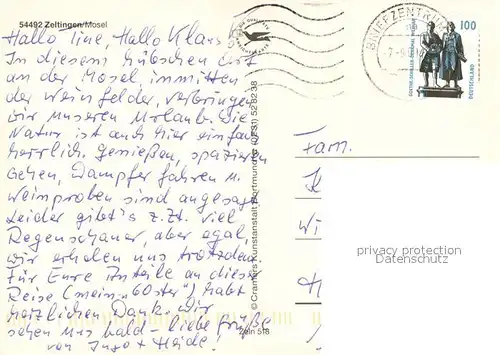 54492 Zeltingen/Mosel
Hallo Tine, Hallo Klaus
In diesem hübschen Ort
an der Mosel, inmitten
der Weinfelder, verbringen
wir unseren Urlaub. Die
Natur ist auch hier einfach
herrlich. Genießen, spazieren
gehen, Dampfer fahren u.
Weinproben sind angesagt.
Leider gibt's z.Zt. viel
Regenschauer, aber egal,
wir erholen uns trotzdem.
Für Eure Anteile an dieser
Reise (mein "60ster") habt
herzlichen Dank. Wir
sehen uns bald - liebe Grüße
von Ingo + Heide!
© Cramers Kunstanstalt Dortmund (0231) 52 82 38
Zeltn 518
BRIEFZENTRUM
100
GOETHE-SCHILLER-DENKMAL WEIMAR
DEUTSCHLAND
Fam.
K
Wi
H
privacy protection
Datenschutz